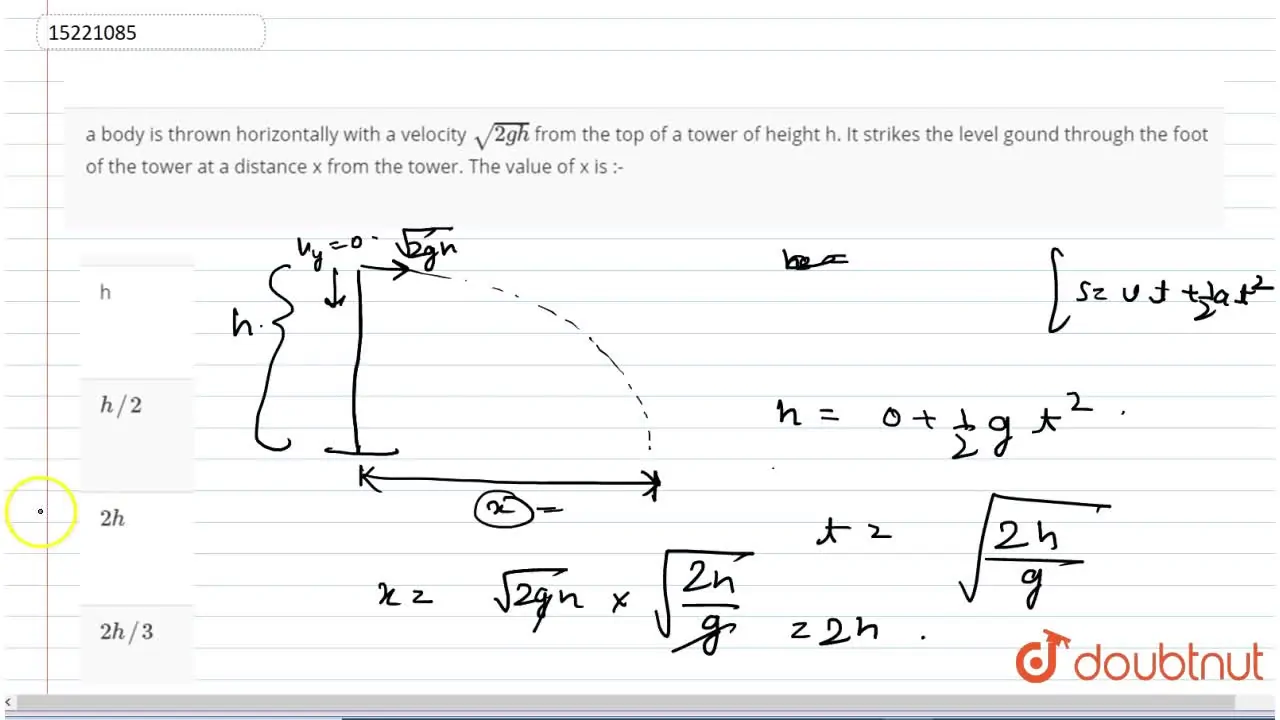 15221085
a body is thrown horizontally with a velocity √2gh from the top of a tower of height h. It strikes the level gound through the foot
of the tower at a distance x from the tower. The value of x is :-
u_y = 0 √2gh
h
S = ut + 1/2 at²
h.
h/2
h = 0 + 1/2 g t²
2h
x =
t = √2h/g
x = √2gh × √2h/g = 2h .
2h/3
doubtnut